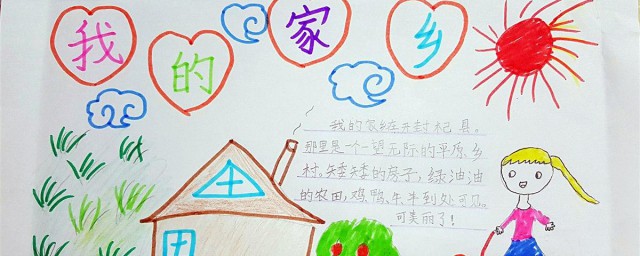 我的家乡
我的家乡在开封杞县。
那里是一个一望无际的平原。乡
村,矮矮的房子,绿油油
的农田,鸡、鸭、牛、羊到处可见。
可美丽了!